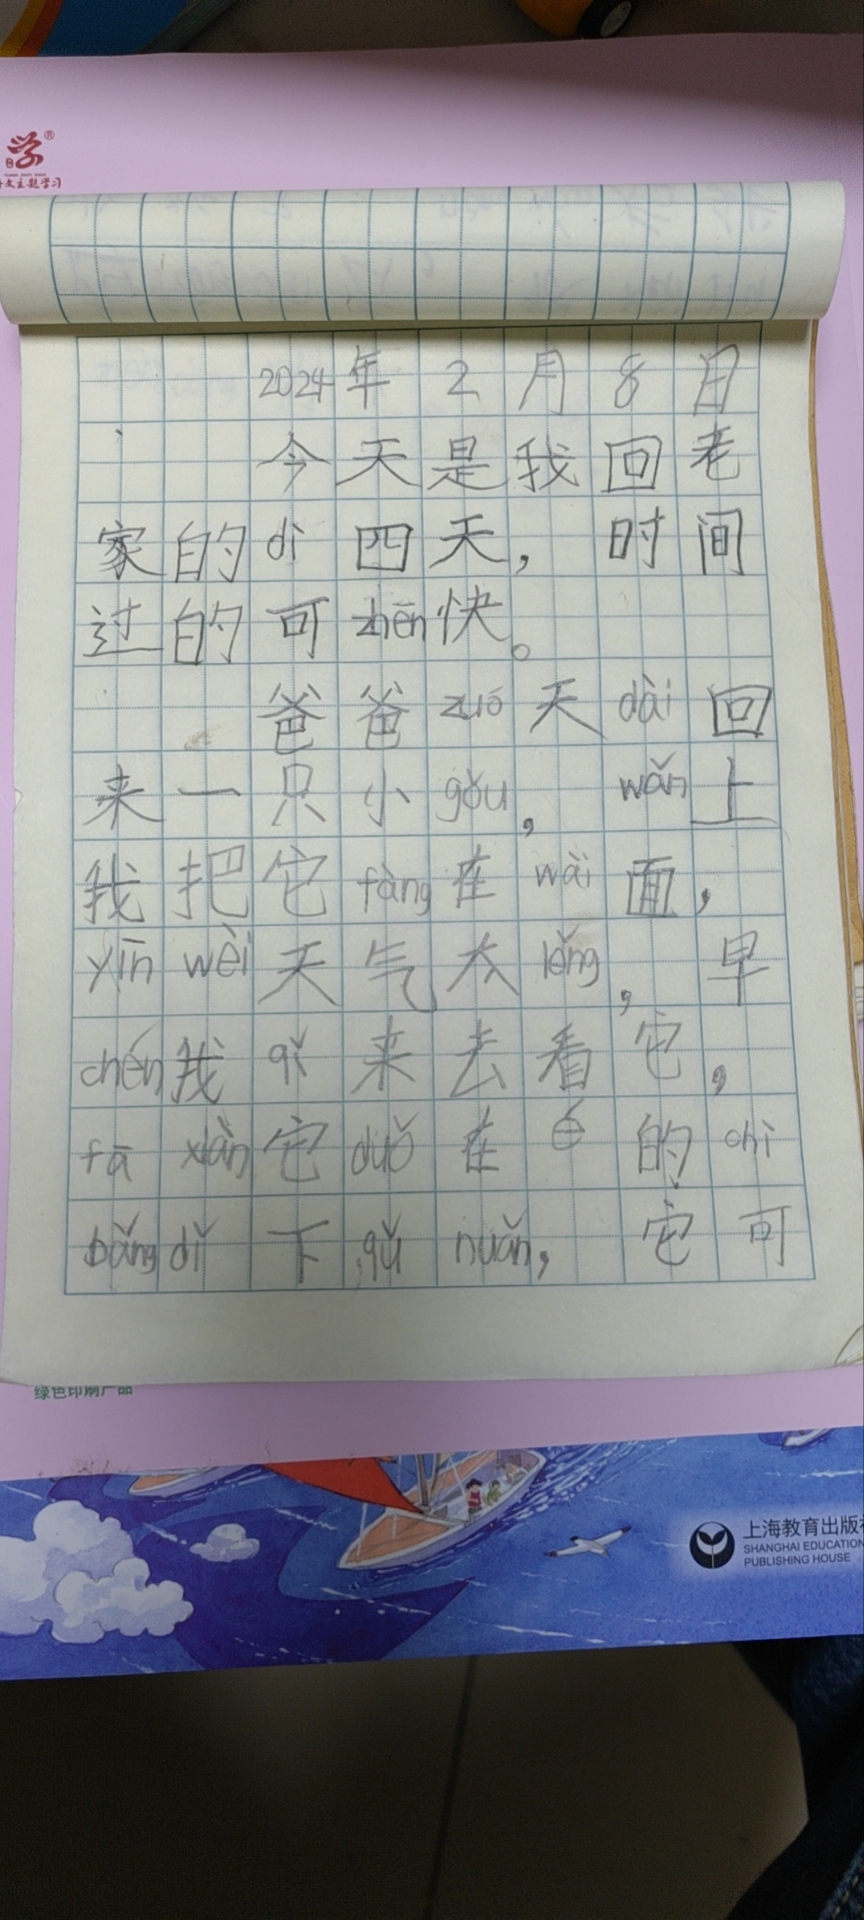 学®
文主题学习
2024年2月8日
今天是我回老
家的dì四天，时间
过的可zhēn快。
爸爸zuó天dài回
来一只小gǒu，wǎn上
我把它fàng在wài面，
yīn wèi天气太lěng，早
chén我qǐ来去看它，
fā xiàn它duǒ在 的chì
bǎng dǐ下，qǔ nuǎn，它可
绿色印刷产品
上海教育出版社
SHANGHAI EDUCATION
PUBLISHING HOUSE